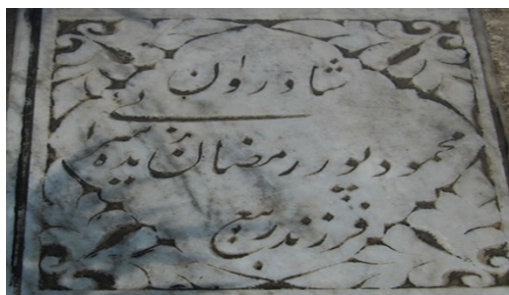 شادروان
محمود پور رمضان
فرزند ربیع